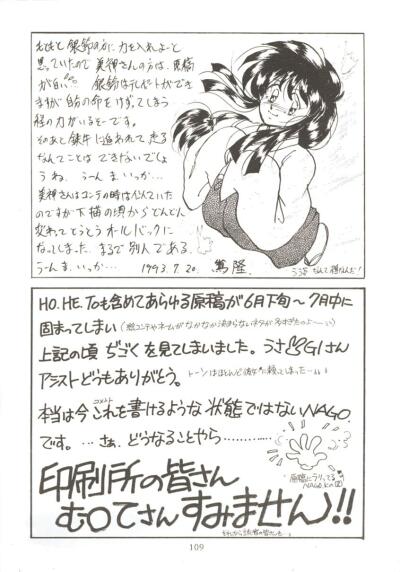 もともと銀鈴の方に力を入れよーと
思っていたので美神さんの方は、原稿
が白い 銀鈴はテレポートができ
ますが自分の命をけずってしまう
程の力がいるそーです。
そのあと鉄牛に追われて走る
なんてことはできないでしょ
うね、うーんまいっか…
美神さんはコンテの時は似ていた
のですが下描の頃からどんどん
変わってとうとうオールバックに
なってしまった。まるで別人である。
うーんまいっか… 1993.7.20. 篤隆
HO.HE.Toも含めてあらゆる原稿が6月下旬〜7月中に
固まってしまい(絵コンテやネームがなかなか決まらないネタが多すぎたのよーい)
上記の頃ぢごくを見てしまいました。うさGIさん
アシストどうもありがとう。 トーンはほとんど彼女に頼ってしまった
本当は今これを書けるような状態ではないNAGO
コメント
です。…さぁ、どうなることやら…………
原稿にラリってる
NAGOくんの図
印刷所の皆さん
む〇てさんすみません〉!!
それから読者の皆さんも
109